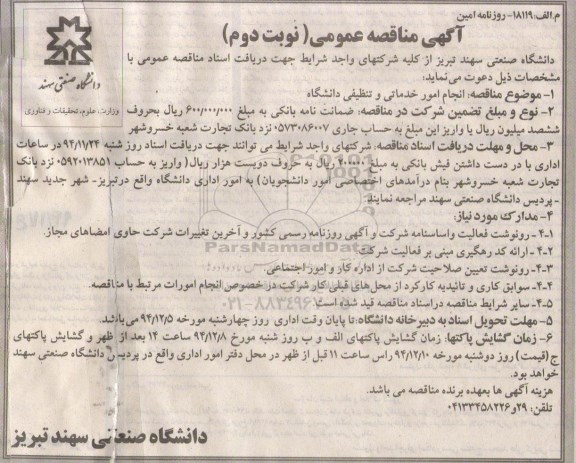 م.الف:۱۸۱۱۹- روزنامه امین
آگهی مناقصه عمومی( نوبت دوم)
دانشگاه صنعتی سهند
وزارت علوم، تحقیقات و فناوری
دانشگاه صنعتی سهند تبریز از کلیه شرکتهای واجد شرایط جهت دریافت اسناد مناقصه عمومی با
مشخصات ذیل دعوت می‌نماید:
۱- موضوع مناقصه: انجام امور خدماتی و تنظیفی دانشگاه
۲- نوع و مبلغ تضمین شرکت در مناقصه: ضمانت نامه بانکی به مبلغ ۶۰۰/۰۰۰/۰۰۰ ریال بحروف
ششصد میلیون ریال یا واریز این مبلغ به حساب جاری ۰۵۷۳۰۸۶۰۰۷ نزد بانک تجارت شعبه خسروشهر
۳- محل و مهلت دریافت اسناد مناقصه: شرکتهای واجد شرایط می توانند جهت دریافت اسناد روز شنبه ۹۴/۱۱/۲۴ در ساعات
اداری با در دست داشتن فیش بانکی به مبلغ ۲۰۰۰۰۰ ریال به حروف دویست هزار ریال( واریز به حساب ۰۵۹۲۰۱۳۸۵۱ نزد بانک
تجارت شعبه خسروشهر بنام درآمدهای اختصاصی امور دانشجویان) به امور اداری دانشگاه واقع درتبریز- شهر جدید سهند
- پردیس دانشگاه صنعتی سهند مراجعه نمایند.
۴- مدارک مورد نیاز:
۴-۱- رونوشت فعالیت واساسنامه شرکت و آگهی روزنامه رسمی کشور و آخرین تغییرات شرکت حاوی امضاهای مجاز.
۴-۲- ارائه کد رهگیری مبنی بر فعالیت شرکت.
۴-۳- رونوشت تعیین صلاحیت شرکت از اداره کار و امور اجتماعی.
۴-۴- سوابق کاری و تائیدیه کارکرد از محل‌های قبلی کار شرکت در خصوص انجام امورات مرتبط با مناقصه.
۴-۵- سایر شرایط مناقصه دراسناد مناقصه قید شده است
۵- مهلت تحویل اسناد به دبیرخانه دانشگاه: تا پایان وقت اداری روز چهارشنبه مورخه ۹۴/۱۲/۵ می‌باشد.
۶- زمان گشایش پاکتها: زمان گشایش پاکتهای الف و ب روز شنبه مورخ ۹۴/۱۲/۸ ساعت ۱۴ بعد از ظهر و گشایش پاکتهای
ج (قیمت) روز دوشنبه مورخه ۹۴/۱۲/۱۰ راس ساعت ۱۱ قبل از ظهر در محل دفتر امور اداری واقع در پردیس دانشگاه صنعتی سهند
خواهد بود.
هزینه آگهی ها بعهده برنده مناقصه می باشد.
تلفن: ۲۹و۰۴۱۳۳۴۵۸۲۲۶
دانشگاه صنعتی سهند تبریز
ParsNamadData